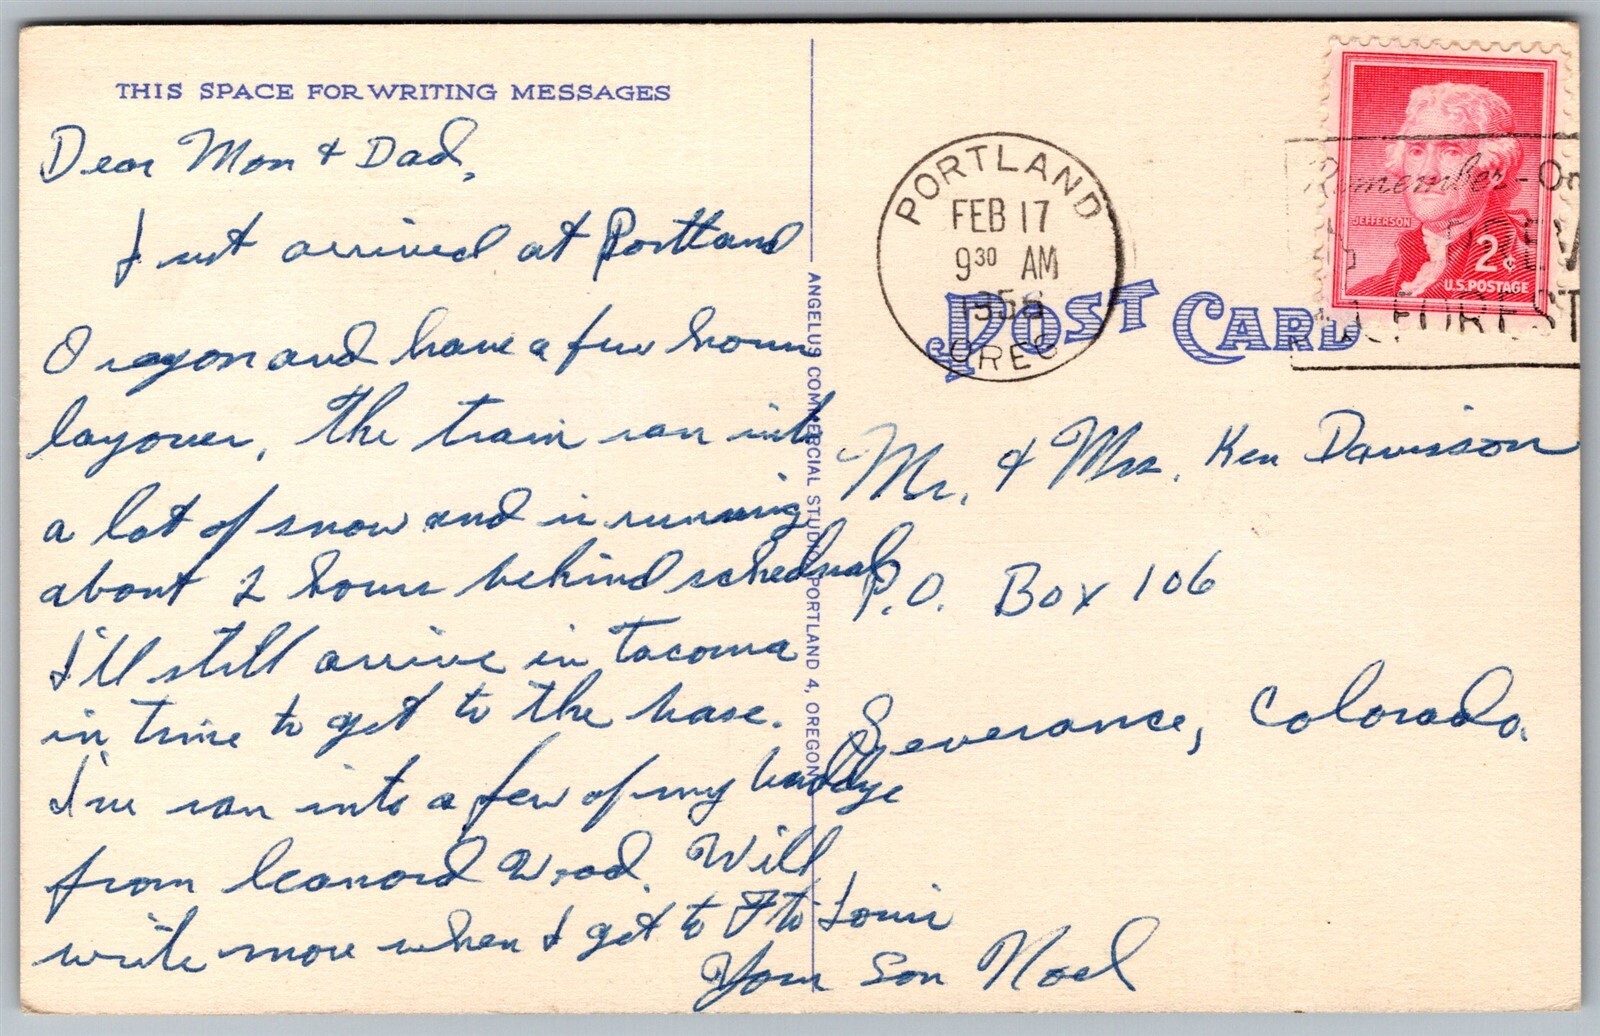 THIS SPACE FOR WRITING MESSAGES
Dear Mom & Dad,
Just arrived at Portland
Oregon and have a few hours
layover, The train ran into
a lot of snow and is running
about 2 hours behind schedual
I'll still arrive in Tacoma
in time to get to the base.
I've ran into a few of my buddys
from Leonard Wood. Will
write more when I get to Ft Louis
Your Son Noel
ANGELUS COMMERCIAL STUDIO, PORTLAND 4, OREGON
PORTLAND
FEB 17
9 30 AM
OREG
POST CARD
JEFFERSON
2¢
U.S. POSTAGE
Remember - On
FOREST
Mr. & Mrs. Ken Davison
P.O. Box 106
Severance, Colorado.